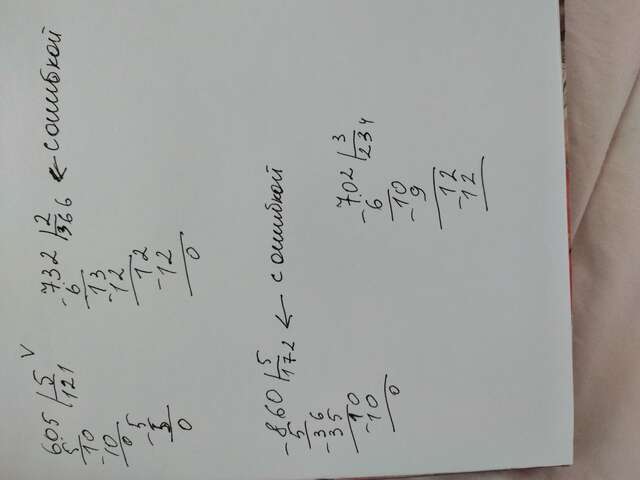 605 | 5 V
5 121
10
-10
0 5
-5
0
-732 | 2 ← с ошибкой
6 366
13
-12
12
-12
0
-860 | 5 ← с ошибкой
5 172
-36
35
10
-10
0
-702 | 3
6 234
-10
9
12
-12